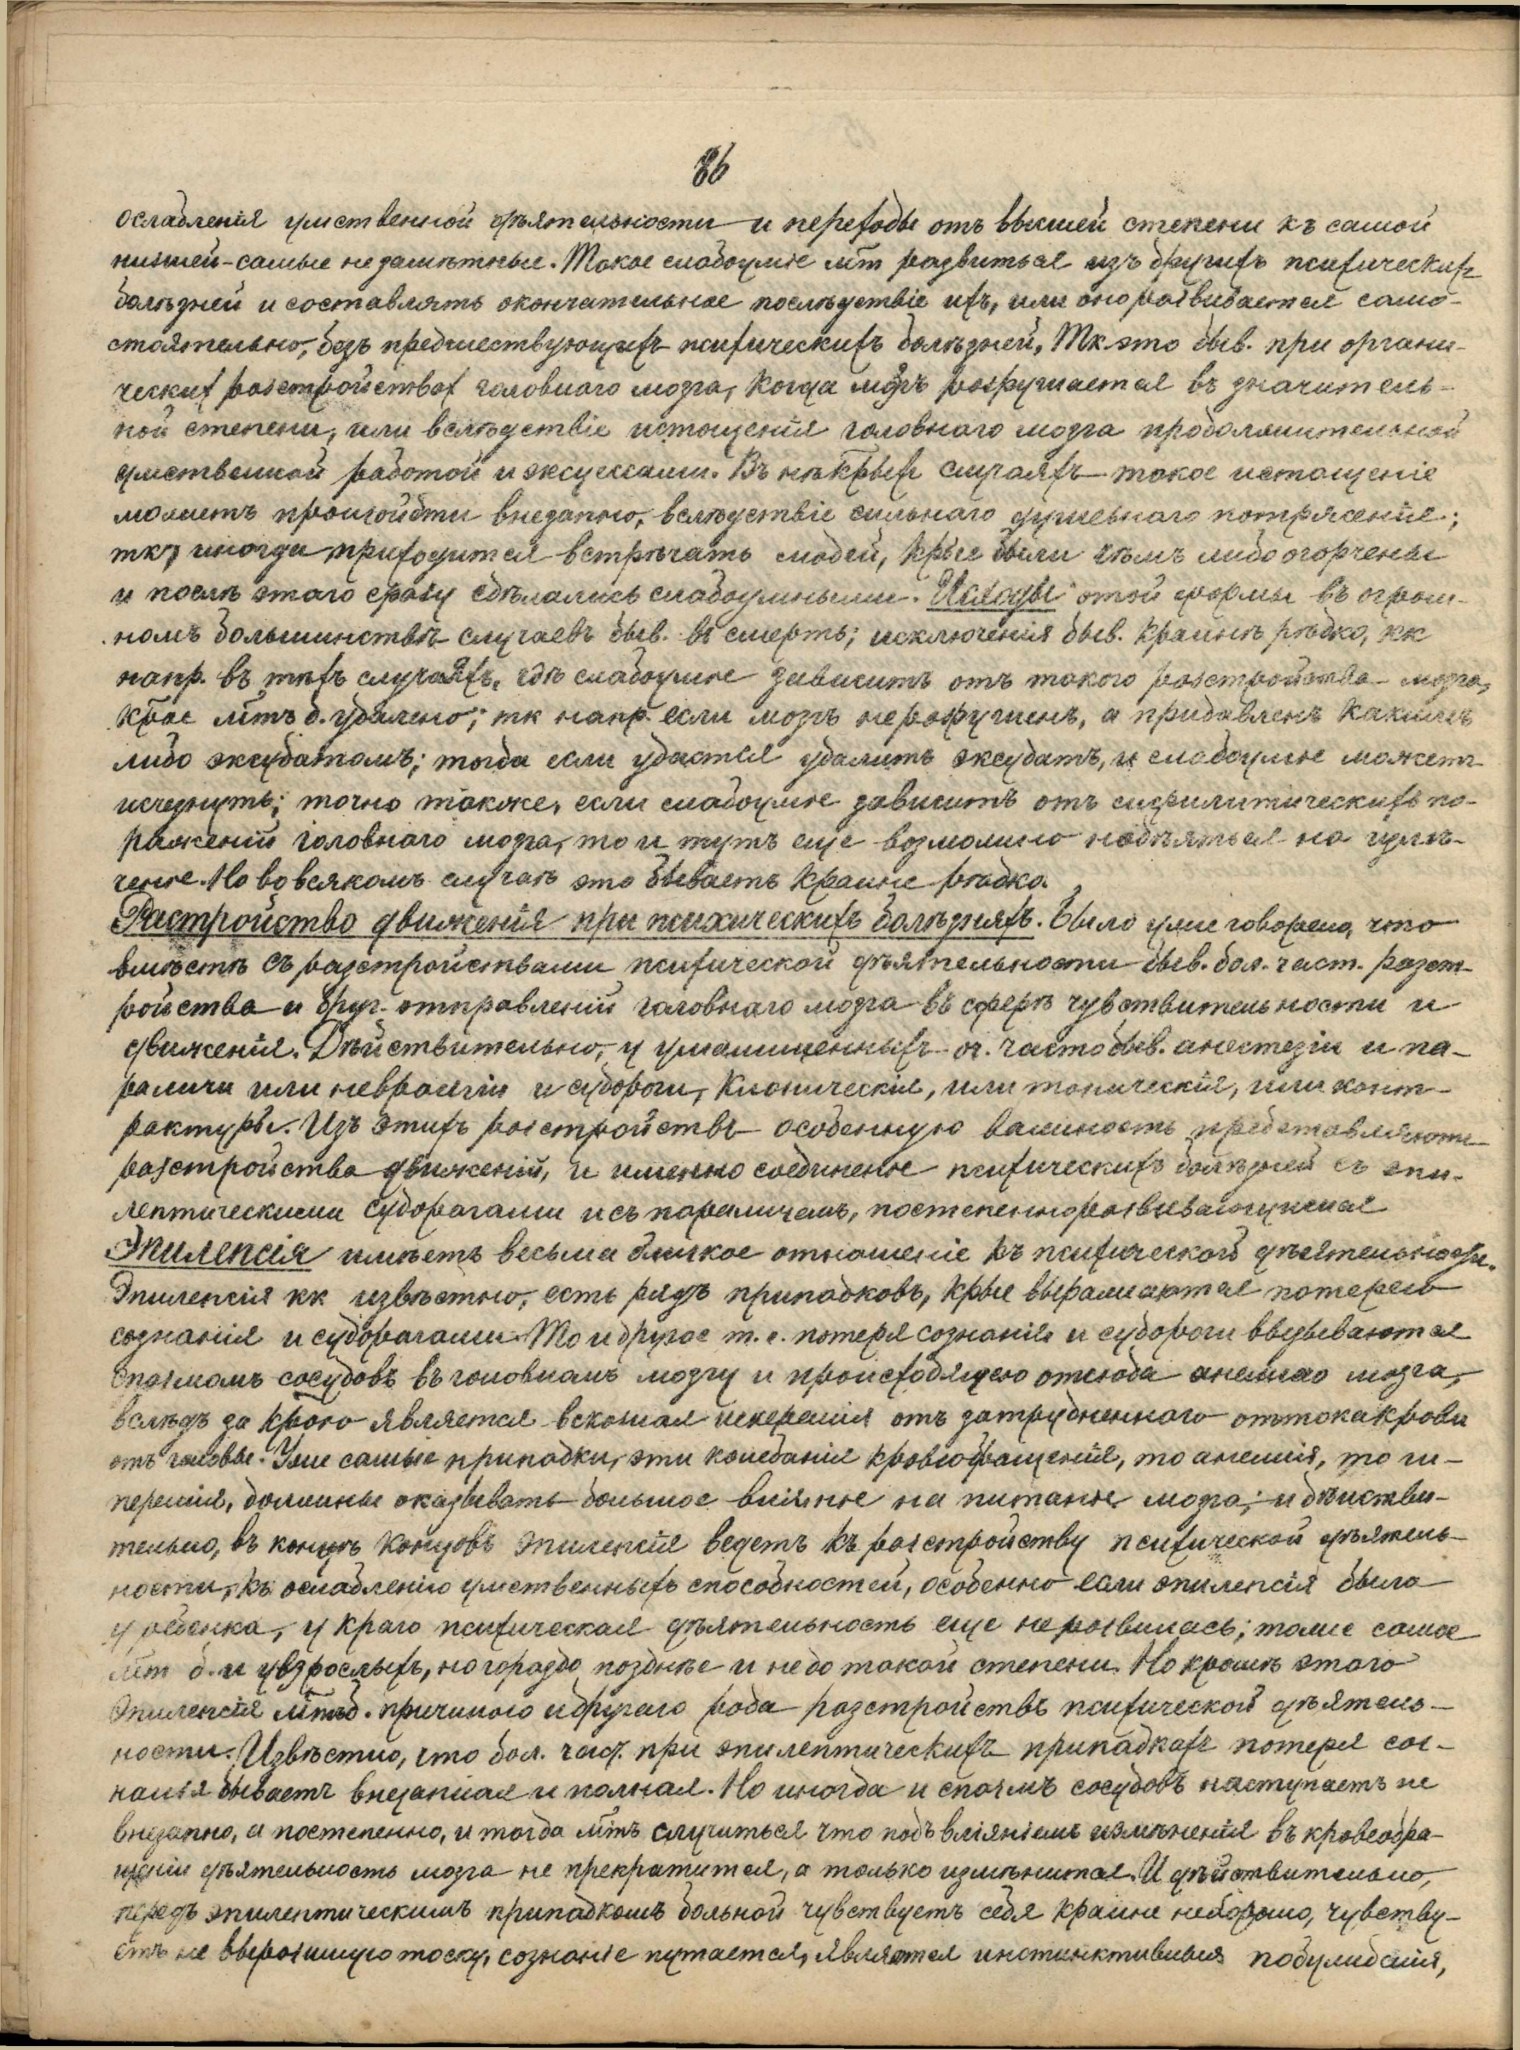 86
ослабленія умственной дѣятельности и переходы отъ высшей степени къ самой
низшей - самые незамѣтные. Такое слабоуміе мт развиться изъ другихъ психическихъ
болѣзней и составлять окончательное послѣдствіе ихъ, или оно развивается само-
стоятельно, безъ предшествующихъ психическихъ болѣзней, Тк это быв. при органи-
ческих разстройствах головного мозга, когда мозгъ разрушается въ значитель-
ной степени, или вслѣдствіе истощенія головнаго мозга продолжительной
умственной работой и эксцессами. Въ нѣкрыхъ случаяхъ такое истощеніе
можетъ произойдти внезапно, вслѣдствіе сильнаго душевнаго потрясенія;
тк, иногда приходится встрѣчать людей, крые были чѣмъ либо огорчены
и послѣ этаго сразу сдѣлались слабоумными. Исходы этой формы въ огром-
номъ большинствѣ случаевъ быв. въ смерть; исключенія быв. крайнѣ рѣдко, кк
напр. въ тѣхъ случаяхъ, гдѣ слабоуміе зависитъ отъ такого разстройства мозга,
крое мтъ б. удалено; тк напр. если мозгъ не разрушенъ, а придавленъ какимъ
либо эксудатомъ; тогда если удастся удалить эксудатъ, и слабоуміе можетъ
исчезнуть; точно также, если слабоуміе зависитъ отъ сифилитическихъ по-
раженій головнаго мозга, то и тутъ еще возможно надѣяться на излѣ-
ченіе. Но во всякомъ случаѣ это бываетъ крайне рѣдко.
Растройство движенія при психическихъ болѣзняхъ. Было уже говорено, что
вмѣстѣ съ разстройствами психической дѣятельности быв. бол. част. разст-
ройства и друг. отправленій головнаго мозга въ сферѣ чувствительности и
движенія. Дѣйствительно, у умалишенныхъ оч. часто быв. анестезіи и па-
раличи или невралгіи и судороги, клоническія, или тоническія, или конт-
рактуры. Изъ этихъ разстройствъ особенную важность представляютъ
разстройства движеній, и именно соединеніе психическихъ болѣзней съ эпи-
лептическими судорогами и съ параличемъ, постепенно развивающимся
Эпилепсія имѣетъ весьма близкое отношеніе къ психической дѣятельности.
Эпилепсія кк извѣстно, есть рядъ припадковъ, крые выражаются потерею
сознанія и судорогами. То и другое т. е. потеря сознанія и судороги вызываются
спазмомъ сосудовъ въ головномъ мозгу и происходящею отсюда анеміею мозга,
вслѣдъ за крою является венозная гиперемія отъ затрудненнаго оттока крови
отъ головы. Уже самые припадки, эти колебанія кровеобращенія, то анемія, то ги-
перемія, должны оказывать большое вліяніе на питаніе мозга; и дѣйстви-
тельно, въ концѣ концовъ эпилепсія ведетъ къ разстройству психической дѣятель-
ности, къ ослабленію умственныхъ способностей, особенно если эпилепсія была
у ребенка, у краго психическая дѣятельность еще не развилась; тоже самое
мт б. и у взрослыхъ, но гораздо позднѣе и не до такой степени. Но кромѣ этаго
Эпилепсія мтъ б. причиною и другаго рода разстройствъ психической дѣятель-
ности. Извѣстно, что бол. част. при эпилептическихъ припадкахъ потеря соз-
нанія бываетъ внезапная и полная. Но иногда и спазмъ сосудовъ наступаетъ не
внезапно, а постепенно, и тогда мтъ случиться что подъ вліяніемъ измѣненія въ кровеобра-
щеніи дѣятельность мозга не прекратится, а только измѣнится. И дѣйствительно,
передъ эпилептическимъ припадкомъ больной чувствуетъ себя крайне нехорошо, чувству-
етъ невыразимую тоску, сознаніе путается, являются инстинктивныя побужденія,